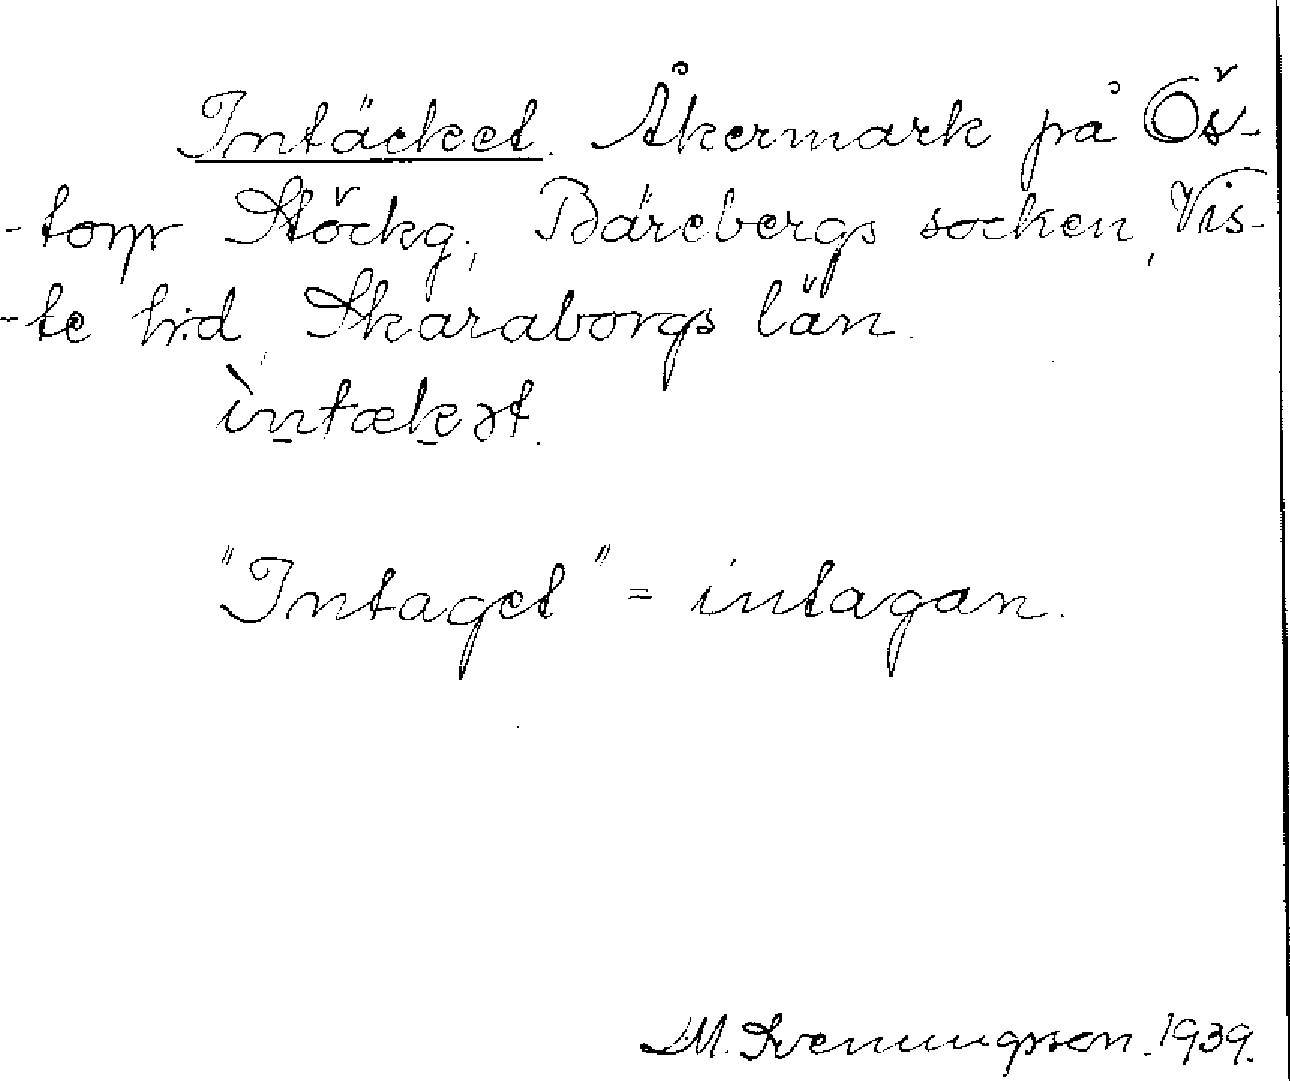 Intäcket. Åkermark på Ös-
-torp Stöckg., Bärebergs socken, Vis-
-te h:d, Skaraborgs län.
ìntækət.
"Intaget" = intagan.
M. Svenungsson. 1939.